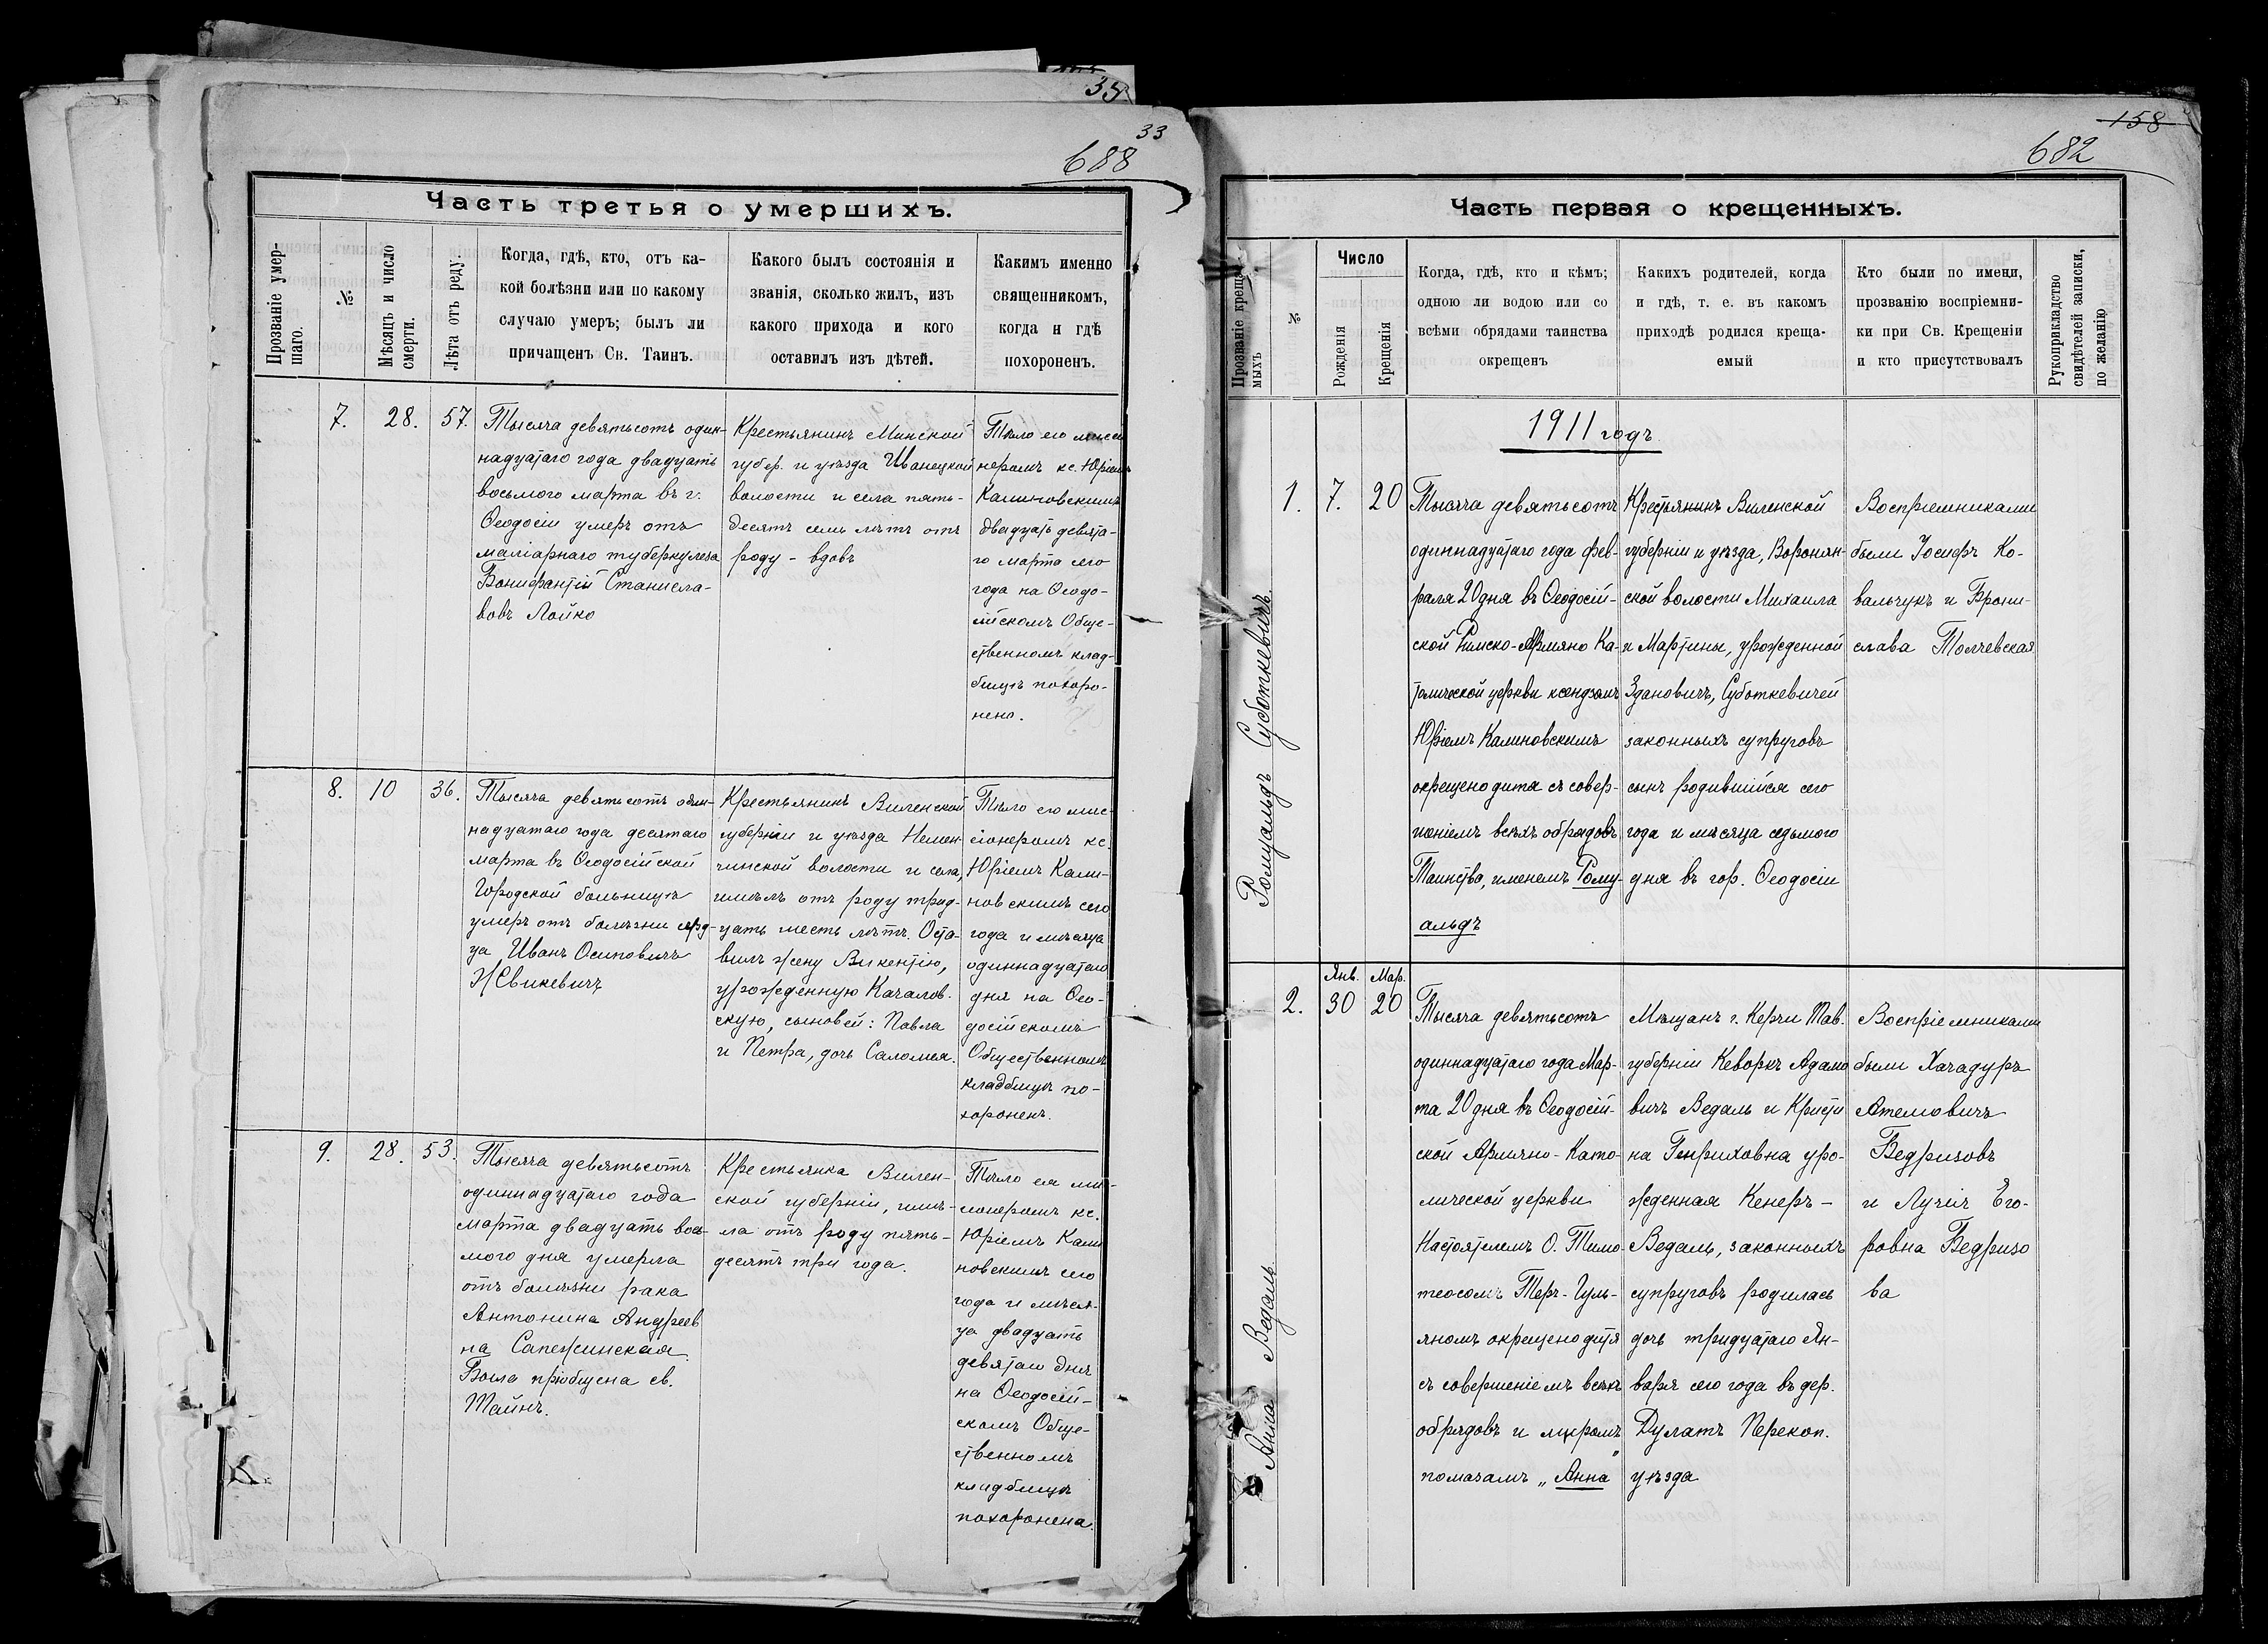 35
33
688
Часть третья о умершихъ.
Прозваніе умер-
шаго.
№
Мѣсяцъ и число
смерти.
Лѣта отъ роду.
Когда, гдѣ, кто, отъ ка-
кой болѣзни или по какому
случаю умеръ; былъ ли
причащенъ Св. Таинъ.
Какого былъ состоянія и
званія, сколько жилъ, изъ
какого прихода и кого
оставилъ изъ дѣтей.
Какимъ именно
священникомъ,
когда и гдѣ
похороненъ.
7.
28.
57.
Тысяча девятьсотъ один-
надцатаго года двадцать
восьмого марта въ г.
Ѳеодосіи умеръ отъ
миліарнаго туберкулеза
Бонифантій Станисла-
вовъ Лойко
Крестьянинъ Минской
губер. и уѣзда Ивенецкой
волости и села пять-
десятъ семь лѣтъ отъ
роду - вдовъ
Тѣло его миссіо
неромъ кс. Юріемъ
Калиновскимъ
двадцать девята-
го марта сего
года на Ѳеодо-
сійскомъ Обще-
ственномъ клад-
бищѣ похоро-
нено.
8.
10
36.
Тысяча девятьсотъ один-
надцатаго года десятаго
марта въ Ѳеодосійской
Городской больницѣ
умеръ отъ болѣзни серд-
ца Иванъ Осиповичъ
Крестьянинъ Виленской
губерніи и уѣзда Немен-
чинской волости и села,
имѣлъ отъ роду трид-
цать шесть лѣтъ. Оста-
вилъ жену Викентію,
урожденную Качалов-
скую, сыновей: Павла
и Петра, дочь Саломея.
Тѣло его мис-
сіонеромъ кс.
Юріемъ Кали-
новскимъ сего
года и мѣсяца
одиннадцатаго
дня на Ѳео-
досійскомъ
Общественномъ
кладбищѣ по-
хороненъ.
9.
28.
53.
Тысяча девятьсотъ
одиннадцатаго года
марта двадцать вось-
мого дня умерла
отъ болѣзни рака
Антонина Андреев
на Сапежинская.
Была пріобщена св.
Тайнъ.
Крестьянка Вилен-
ской губерніи, имѣ-
ла отъ роду пять-
десятъ три года.
Тѣло ея мис-
сіонеромъ кс.
Юріемъ Кали
новскимъ сего
года и мѣся-
ца двадцать
девятаго дня
на Ѳеодосій-
скомъ Обще-
ственномъ
кладбищѣ
похоронена.
158
682
Часть первая о крещенныхъ.
Прозваніе крещае-
мыхъ
№
Число
Рожденія
Крещенія
Когда, гдѣ, кто и кѣмъ;
одною ли водою или со
всѣми обрядами таинства
окрещенъ
Какихъ родителей, когда
и гдѣ, т. е. въ какомъ
приходѣ родился креща-
емый
Кто были по имени,
прозванію воспріемни-
ки при Св. Крещеніи
и кто присутствовалъ
Рукоприкладство
свидѣтелей записки,
по желанію
1911 годъ
Ромуальдъ Суботкевичъ
1.
7.
20
Тысяча девятьсотъ
одиннадцатаго года фев-
раля 20 дня въ Ѳеодосій-
ской Римско-Армяно Ка-
толической церкви ксендзомъ
Юріемъ Калиновскимъ
окрещено дитя съ совер-
шеніемъ всѣхъ обрядовъ
Таинства, именемъ Рому-
альдъ
Крестьянинъ Виленской
губерніи и уѣзда, Воронян-
ской волости Михаила
и Мартины, урожденной
Здановичъ, Суботкевичей
законныхъ супруговъ
сынъ родившійся сего
года и мѣсяца седьмого
дня въ гор. Ѳеодосіи
Воспріемниками
были Іосифъ Ко-
вальчукъ и Брони-
слава Толчевская.
Анна Ведаль
2.
Янв.
30
Мар.
20
Тысяча девятьсотъ
одиннадцатаго года Мар-
та 20 дня въ Ѳеодосій-
ской Армяно-Като-
лической церкви
Настоятелемъ О. Тимо-
теосомъ Теръ-Гуль-
яномъ окрещено дитя
съ совершеніемъ всѣхъ
обрядовъ и мѵромъ
помазамъ „Анна"
Мѣщанъ г. Керчи Тав.
губерніи Кеворкъ Адамо
вичъ Ведаль и Кристи
на Генриховна уро-
жденная Кенеръ -
Ведаль, законныхъ
супруговъ родилась
дочь тридцатаго Ян-
варя сего года въ дер.
Дулатъ Перекоп.
уѣзда
Воспріемниками
были Хачадуръ
Атемовичъ
Бедризовъ
и Лучія Его-
ровна Бедризо
ва